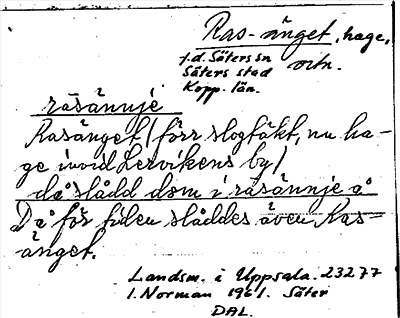 Ras-änget, hage,
f.d. Säters sn ortn.
Säters stad
Kopp. län.
räsännje
Rasänget (förr slogtäkt, nu ha-
ge invid Lervikens by)
då slådd dom i räsännje å
Då för tiden slåddes även Ras-
änget.
Landsm. i Uppsala. 23277
I. Norman 1961. Säter
DAL.